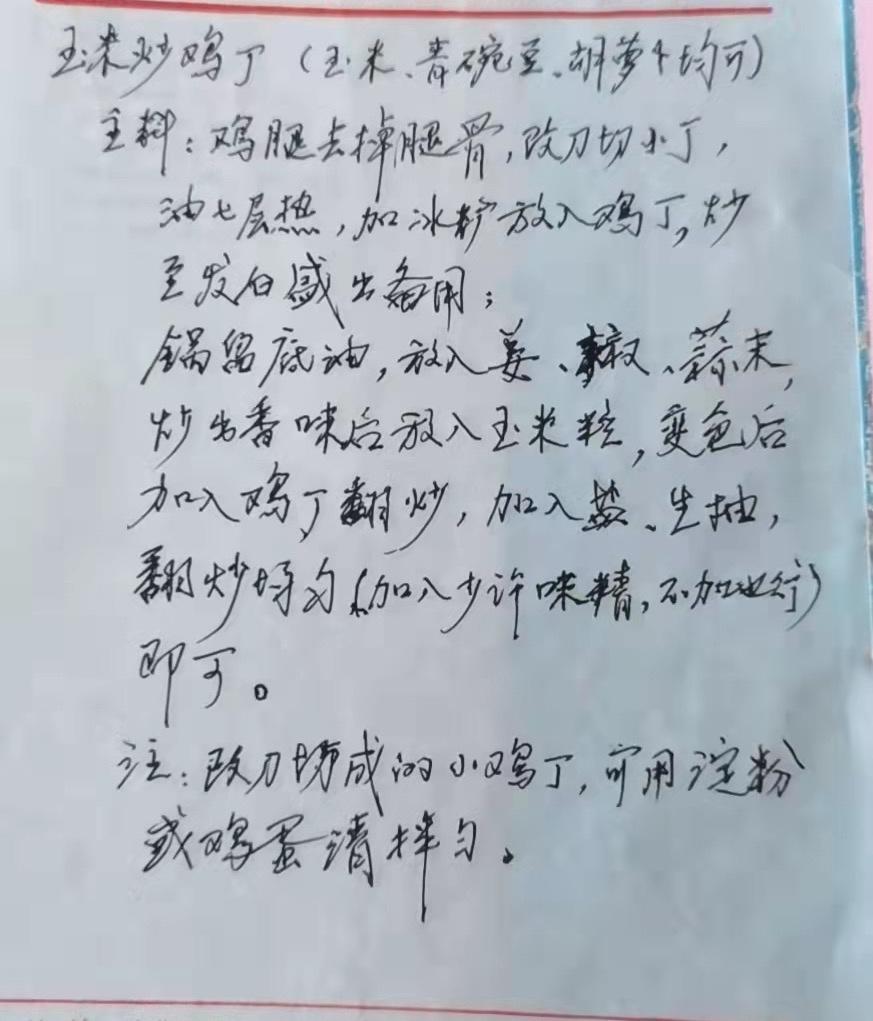 玉米炒鸡丁（玉米、青碗豆、胡萝卜均可）
主料：鸡腿去掉腿骨，改刀切小丁，
油七层热，加冰籽放入鸡丁，炒
至发白盛出备用；
锅留底油，放入姜、椒、蒜末，
炒出香味后放入玉米粒，变色后
加入鸡丁翻炒，加入盐、生抽，
翻炒均匀（加入少许味精，不加也行）
即可。
注：改刀切成的小鸡丁，可用淀粉
或鸡蛋清拌匀。